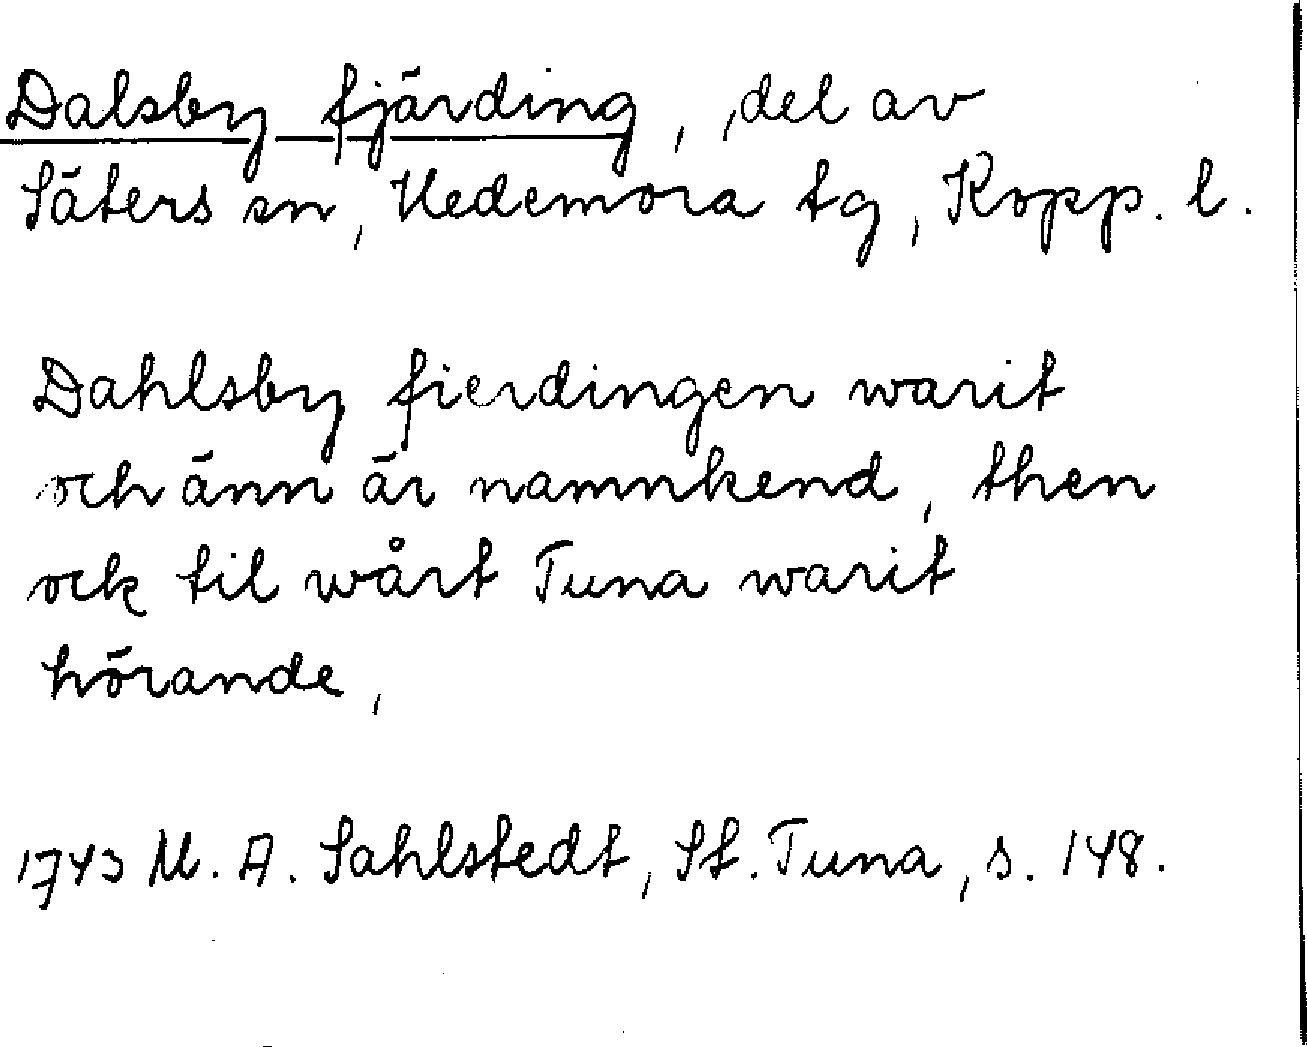 Dalsby fjärding, del av
Säters sn, Hedemora tg, Kopp. l.
Dahlsby fierdingen warit
och änn är namnkend, then
ock til wårt Tuna warit
hörande,
1743 M. A. Sahlstedt, St. Tuna, s. 148.